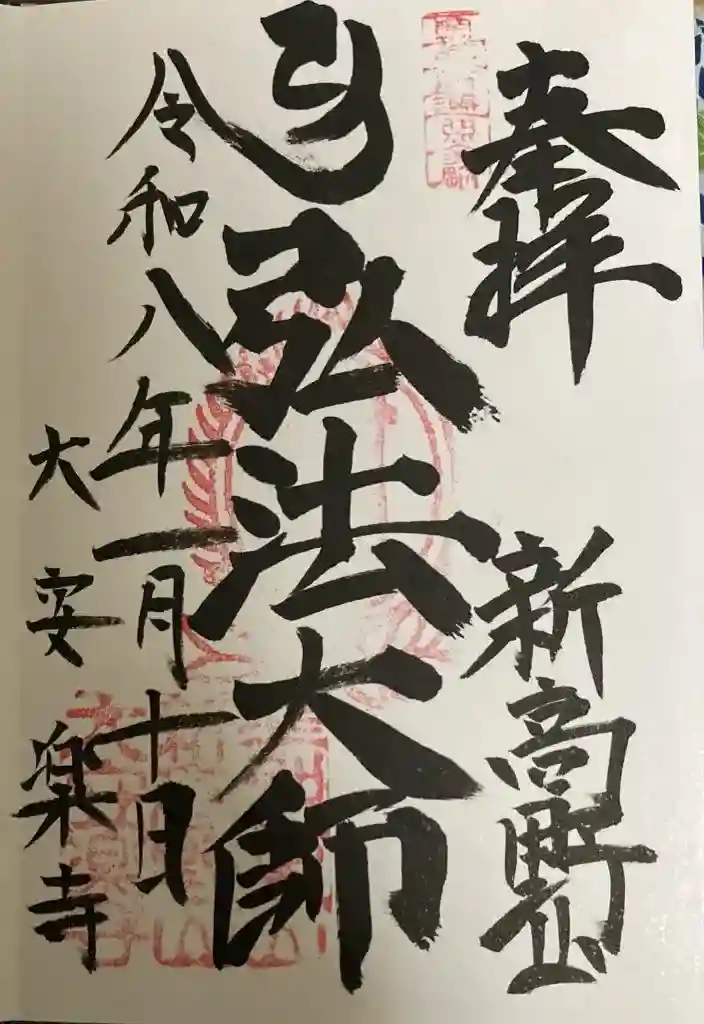 奉拝
新高野山
弘法大師
令和八年一月十日
大安楽寺